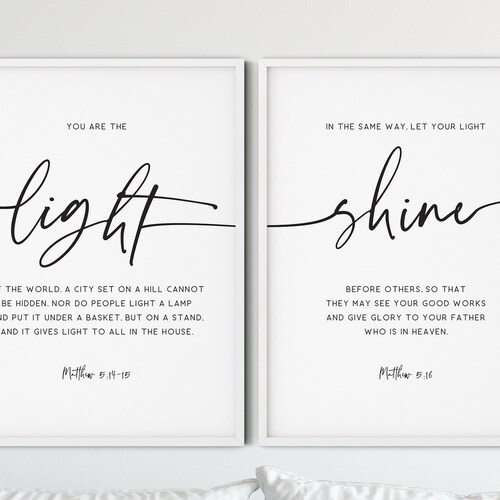 YOU ARE THE
light
THE WORLD. A CITY SET ON A HILL CANNOT
BE HIDDEN. NOR DO PEOPLE LIGHT A LAMP
PUT IT UNDER A BASKET, BUT ON A STAND,
AND IT GIVES LIGHT TO ALL IN THE HOUSE.
Matthew 5:14-15
IN THE SAME WAY, LET YOUR LIGHT
shine
BEFORE OTHERS, SO THAT
THEY MAY SEE YOUR GOOD WORKS
AND GIVE GLORY TO YOUR FATHER
WHO IS IN HEAVEN.
Matthew 5:16